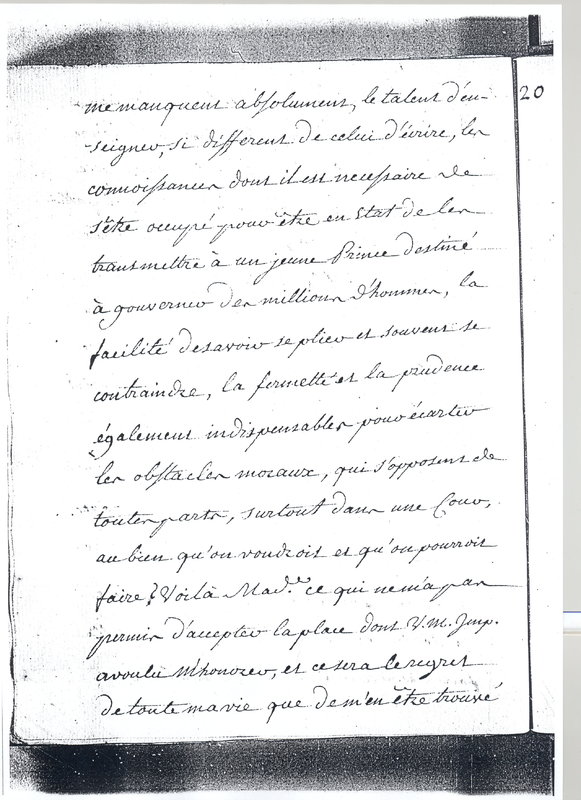 20
me manquent absolument, le talent d'en-
-seigner, si different de celui d'écrire, les
connoissances dont il est necessaire de
s'être occupé pour être en Etat de les
transmettre à un jeune Prince destiné
à gouverner des millions d'hommes, la
facilité de savoir se plier et souvent se
contraindre, la fermeté et la prudence
également indispensables pour écarter
les obstacles moraux, qui s'opposent de
toutes parts, surtout dans une Cour,
au bien qu'on voudroit et qu'on pourroit
faire? Voilà Mad.e ce qui ne m'a pas
permis d'accepter la place dont V. M. Imp.
a voulu m'honorer, et ce sera le regret
de toute ma vie que de m'en être trouvé